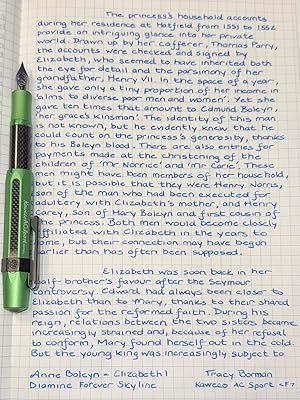 The princess's household accounts
during her residence at Hatfield from 1551 to 1552
provide an intriguing glance into her private
world. Drawn up by her cofferer, Thomas Parry,
the accounts were checked and signed by
Elizabeth, who seemed to have inherited both
the eye for detail and the parsimony of her
grandfather, Henry VII. In the space of a year,
she gave only a tiny proportion of her income in
'alms to diverse poor men and women'. Yet she
gave ten times that amount to Edmund Boleyn,
'her grace's kinsman'. The identity of this man
is not known, but he evidently knew that he
could count on the princess's generosity, thanks
to his Boleyn blood. There are also entries for
payments made at the christening of the
children of 'Mr Norrice' and 'Mr Carie'. These
men might have been members of her household,
but it is possible that they were Henry Norris,
son of the man who had been executed for
adultery with Elizabeth's mother, and Henry
Carey, son of Mary Boleyn and first cousin of
the princess. Both men would become closely
affiliated with Elizabeth in the years to
come, but their connection may have begun
earlier than has often been supposed.
Elizabeth was soon back in her
half-brother's favour after the Seymour
controversy. Edward had always been closer to
Elizabeth than to Mary, thanks to their shared
passion for the reformed faith. During his
reign, relations between the two sisters became
increasingly strained and, because of her refusal
to conform, Mary found herself out in the cold.
But the young king was increasingly subject to
Anne Boleyn + Elizabeth I Tracy Borman
Diamine Forever Skyline Kaweco AC Sport <F>